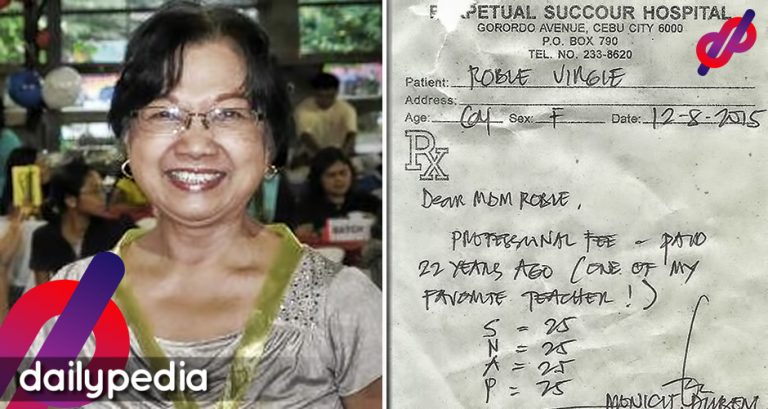 PERPETUAL SUCCOUR HOSPITAL
GORORDO AVENUE, CEBU CITY 6000
P.O. BOX 790
TEL. NO. 233-8620
Patient: ROBLE VIRGIE
Address:
Age: 64 Sex: F Date: 12-8-2015
Rx
Dear MDM ROBLE,
PROFESSIONAL FEE - PAID
22 YEARS AGO (ONE OF MY
FAVORITE TEACHER!)
S = 25
N = 25
A = 25
P = 25
BATCH
dailypedia